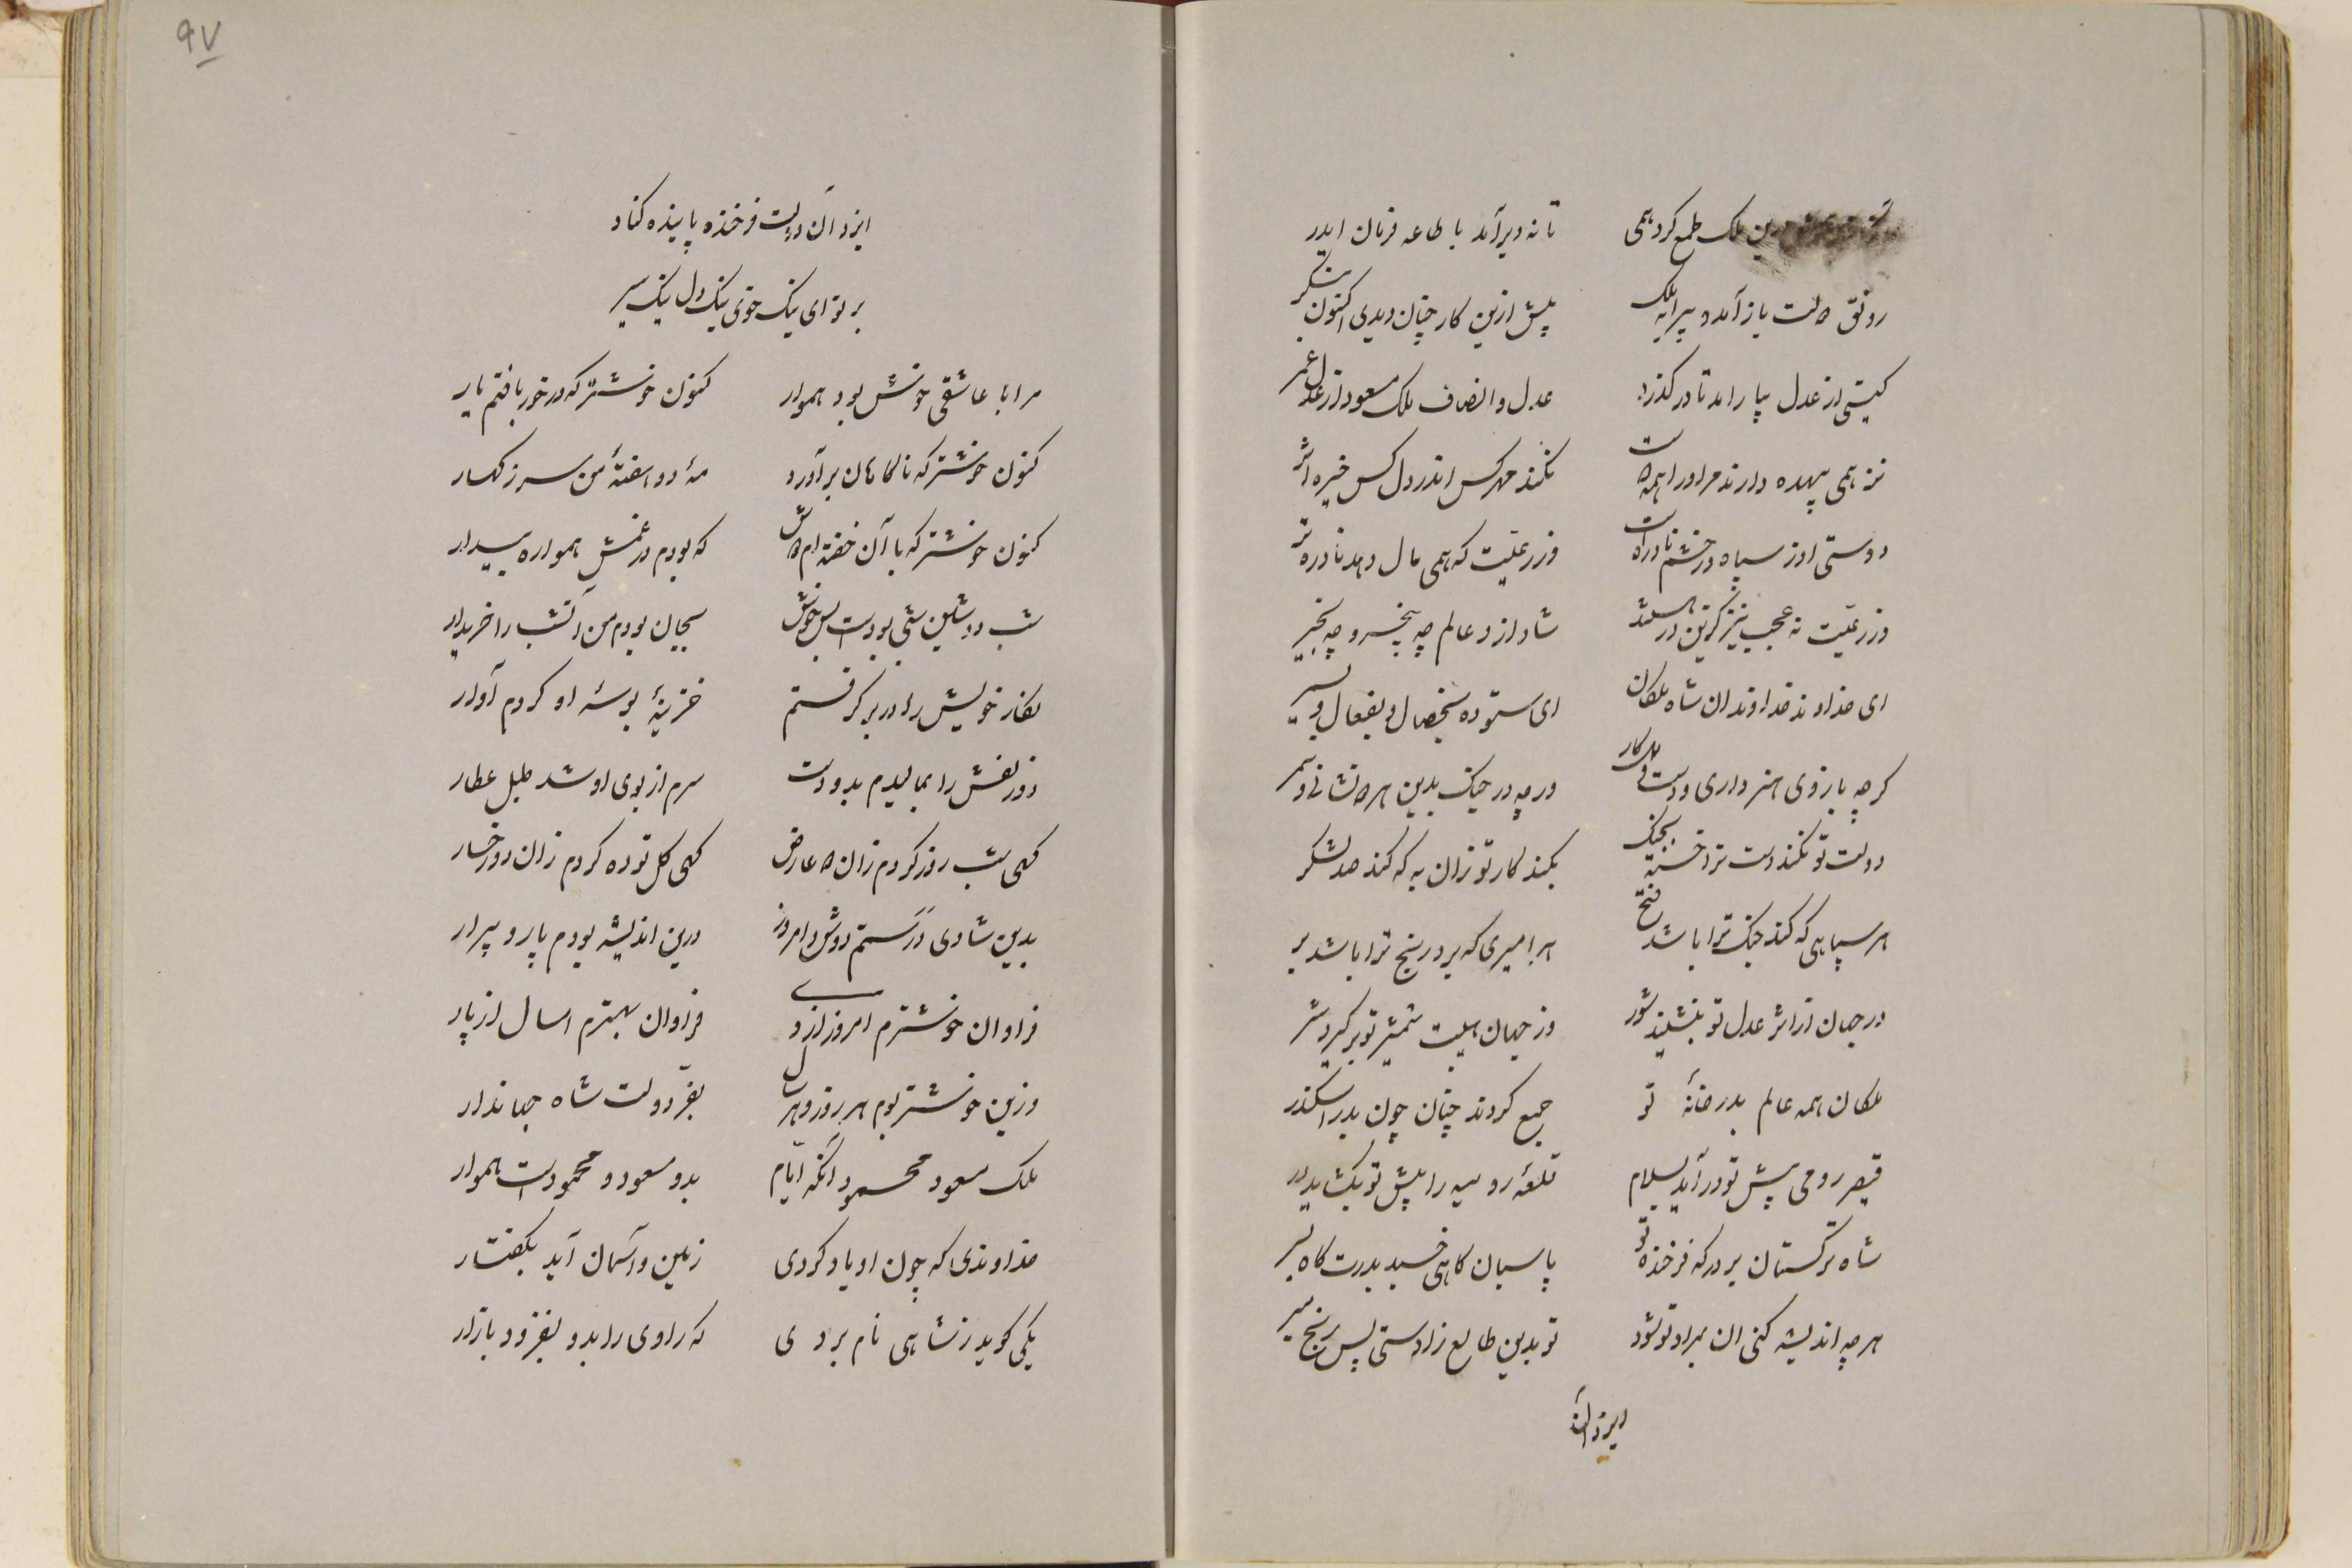 ملک طمع کرد همی تا نه دیر آمد با طاعه فرمان ایدر
رونق دولت باز آمد و پیرایه ملک پیش ازین کار چنان دیدی اکنون بنگر
گیتی از عدل بیاراید تا در گذرد عدل و انصاف ملک مسعود از عدل عمر
نز همی بیهده دارند مر او را همه دوست نکند مهر کس اندر دل کس خیره اثر
دوستی او ز سپاه و ز حشم نادره است وز رعیت که همی مال دهد نادره‌تر
وز رعیت نه عجب نیز کزین در هستند شاد ازو عالم چه بخسرو چه بخبر
ای خداوند خداوندان شاه ملکان ای ستوده بخصال و بفعال و بسیر
گر چه بازوی هنر داری و دست کار ور چه در جنگ بدین هر دو نشانی و سمر
دولت تو نکند دست ترا خسته بجنگ بکند کار تو زان به که کند صد لشکر
هر سپاهی که کند جنگ ترا باشد فتح هر امیری که برد رنج ترا باشد بر
در جهان از اثر عدل تو بنشیند شور وز جهان هیبت شمشیر تو برگیرد شر
ملکان همه عالم بدر خانهٔ تو جمع گردند چنان چون بدر اسکندر
قیصر رومی پیش تو در آید بسلام قلعهٔ رومیه را پیش تو بگشاید در
شاه ترکستان بر درگه فرخنده تو پاسبان گاهی خسبد بدرت گاه بسر
هر چه اندیشه کنی ان بمراد تو شود تو بدین طالع زادستی پس رنج مبر
ایزد آن
۹۷
ایزد آن دولت فرخنده پاینده کناد
بر تو ای نیک خوی نیک دل نیک سیر
مرا با عاشقی خوش بود هموار کنون خوشتر که در خور یافتم یار
کنون خوشتر که ناگاهان برآورد مهٔ دو هفتهٔ من سر ز کهسار
کنون خوشتر که با آن خفته‌ام دوش که بودم در غمش همواره بیدار
شب دوشین شبی بودست بس خوش بجان بودم من آنشب را خریدار
نگار خویش را در بر گرفتم خزینهٔ بوسهٔ او کردم آوار
دو زلفش را بمالیدم بدو دست سرم از بوی او شد طبل عطار
گهی شب روز کردم زان دو عارض گهی گل توده کردم زان دو رخسار
بدین شادی در رستم دوش و امروز درین اندیشه بودم پار و پیرار
فراوان خوشترم امروز از دی فراوان بهترم امسال از پار
وزین خوشتر بوم هر روز و هر سال بفرّ دولت شاه جهاندار
ملک مسعود محمود آنکه ایّام بدو مسعود و محمودست هموار
خداوندی که چون او یاد کردی زمین و آسمان آید بگفتار
یکی گوید ز شاهی نام بردی که راوی را بدو بفزود بازار